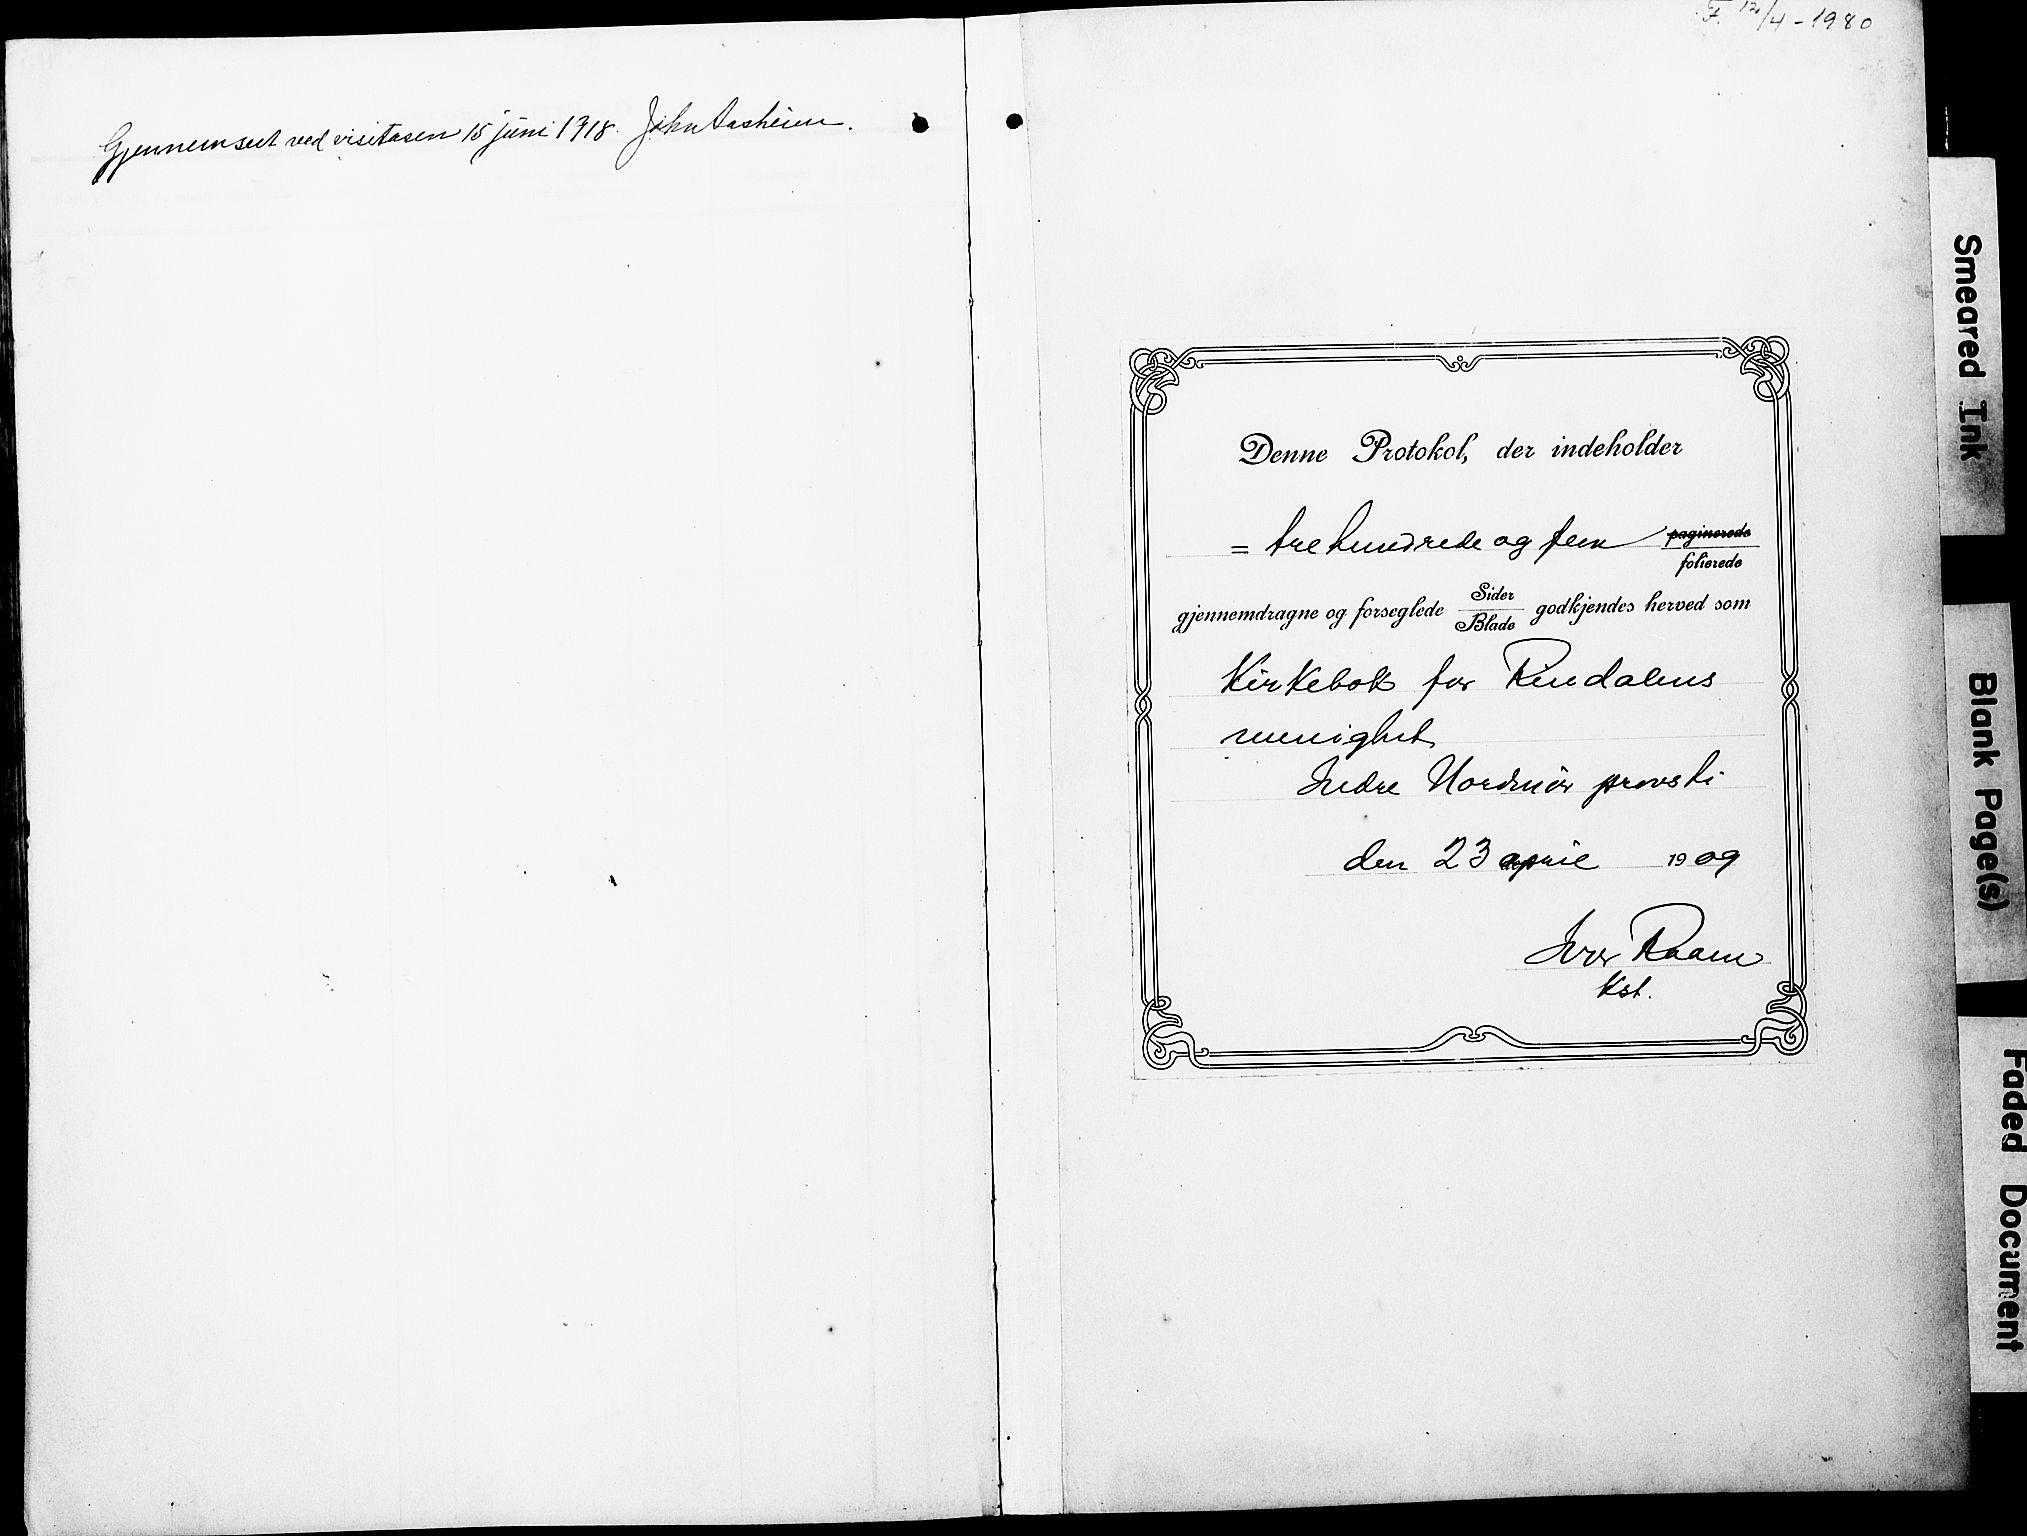 Gjennemset ved visitasen 15 juni 1918. John Aasheim.
F. 12/4 - 1980
Denne Protokol, der indeholder
= tre hundrede og fem paginerede
folierede
gjennemdragne og forseglede Sider
Blade godkjendes herved som
Kirkebok for Rindalens
menighet
Indre Nordmør provsti
den 23 april 1909
Iver Raam
Kst.
Smeared Ink
Blank Page(s)
Faded Document